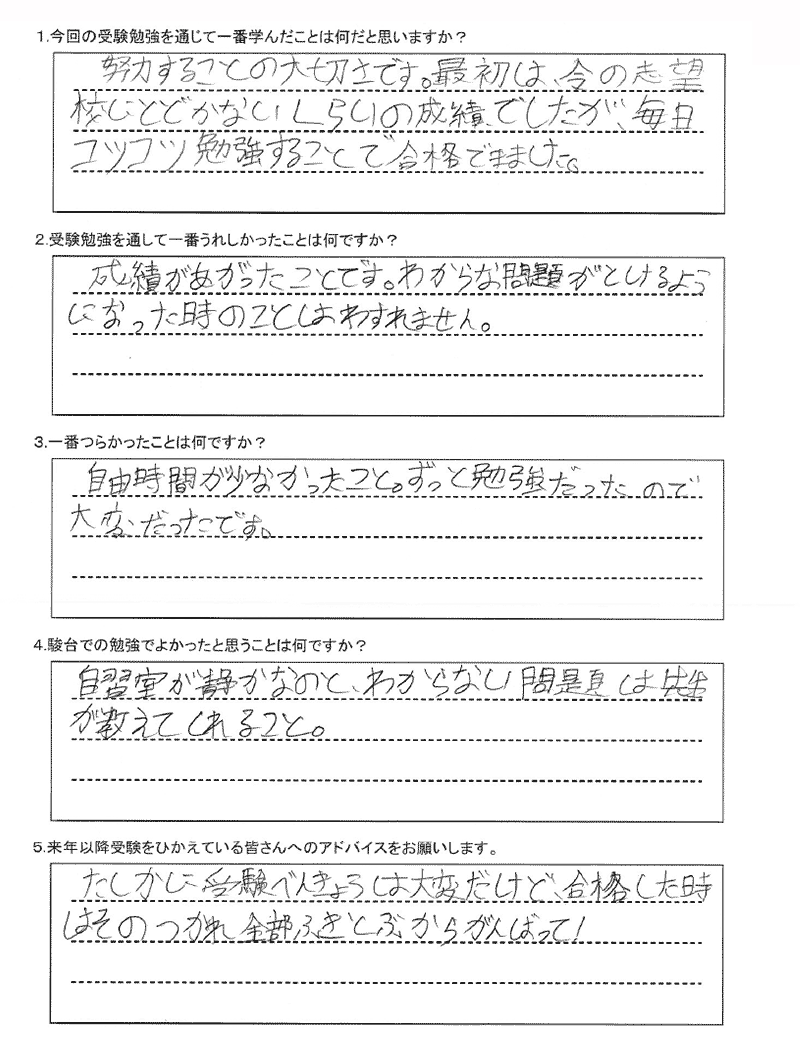 1.今回の受験勉強を通じて一番学んだことは何だと思いますか？
努力することの大切さです。最初は、今の志望
校にとどかないくらいの成績でしたが、毎日
コツコツ勉強することで合格できました。
2.受験勉強を通して一番うれしかったことは何ですか？
成績があがったことです。わからな問題がとけるよう
になった時のことはわすれません。
3.一番つらかったことは何ですか？
自由時間が少なかったこと。ずっと勉強だったので
大変だったです。
4.駿台での勉強でよかったと思うことは何ですか？
自習室が静かなのと、わからない問題は先生
が教えてくれること。
5.来年以降受験をひかえている皆さんへのアドバイスをお願いします。
たしかに受験べんきょうは大変だけど、合格した時
はそのつかれ全部ふきとぶからがんばって!